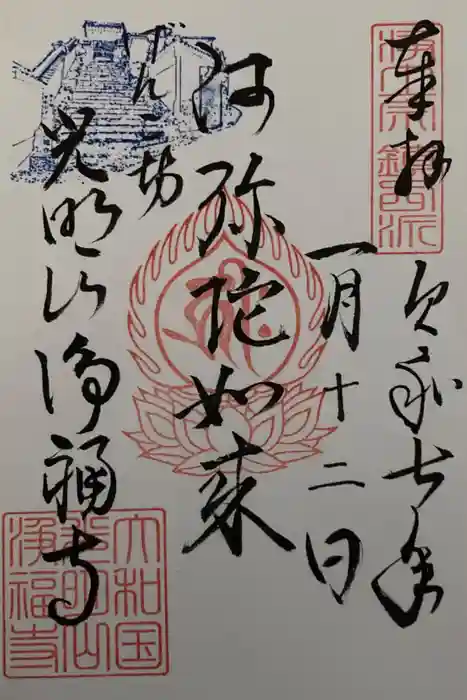 奉拝
浄土宗 鎮西派
令和七年
一月十二日
阿弥陀如来
光明山 浄福寺
大和国
光明山
浄福寺